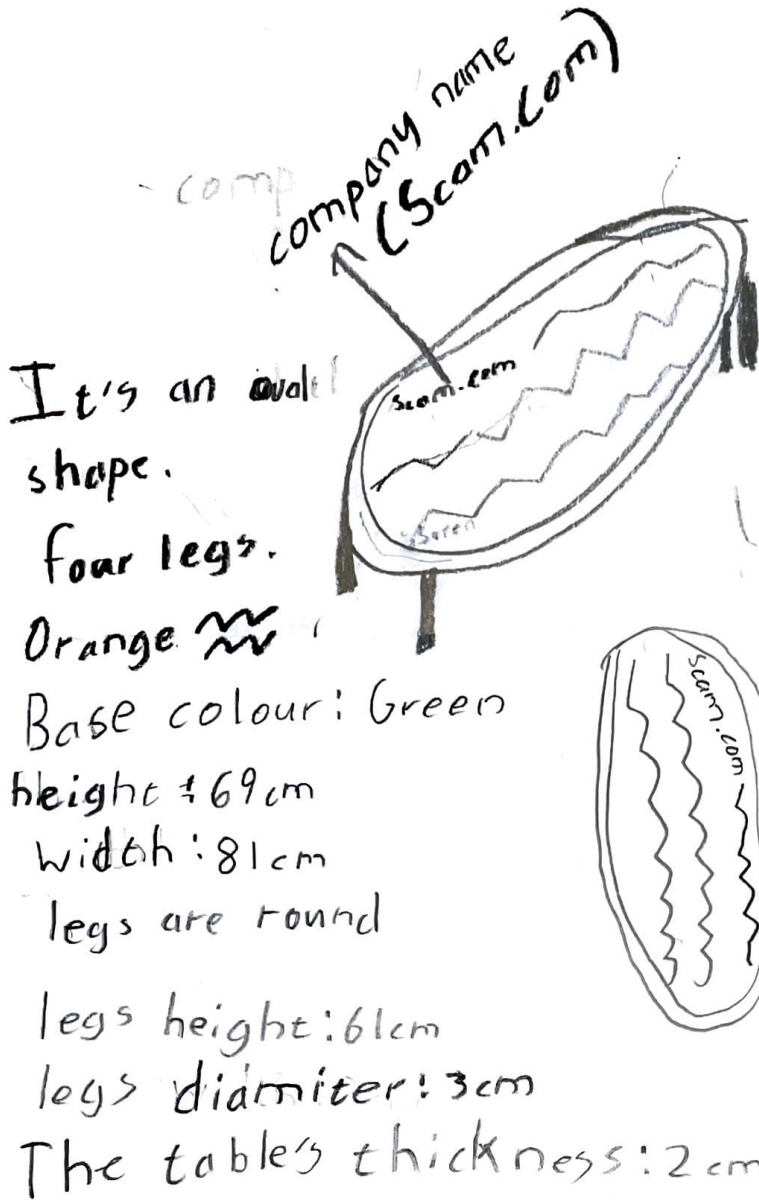 comp
company name
(Scam.com)
Scam.com
It's an oval
shape.
four legs.
Orange
Base colour: Green
height: 69cm
width: 81cm
legs are round
Scam.com
legs height: 61cm
legs diamiter: 3cm
The table's thickness: 2cm